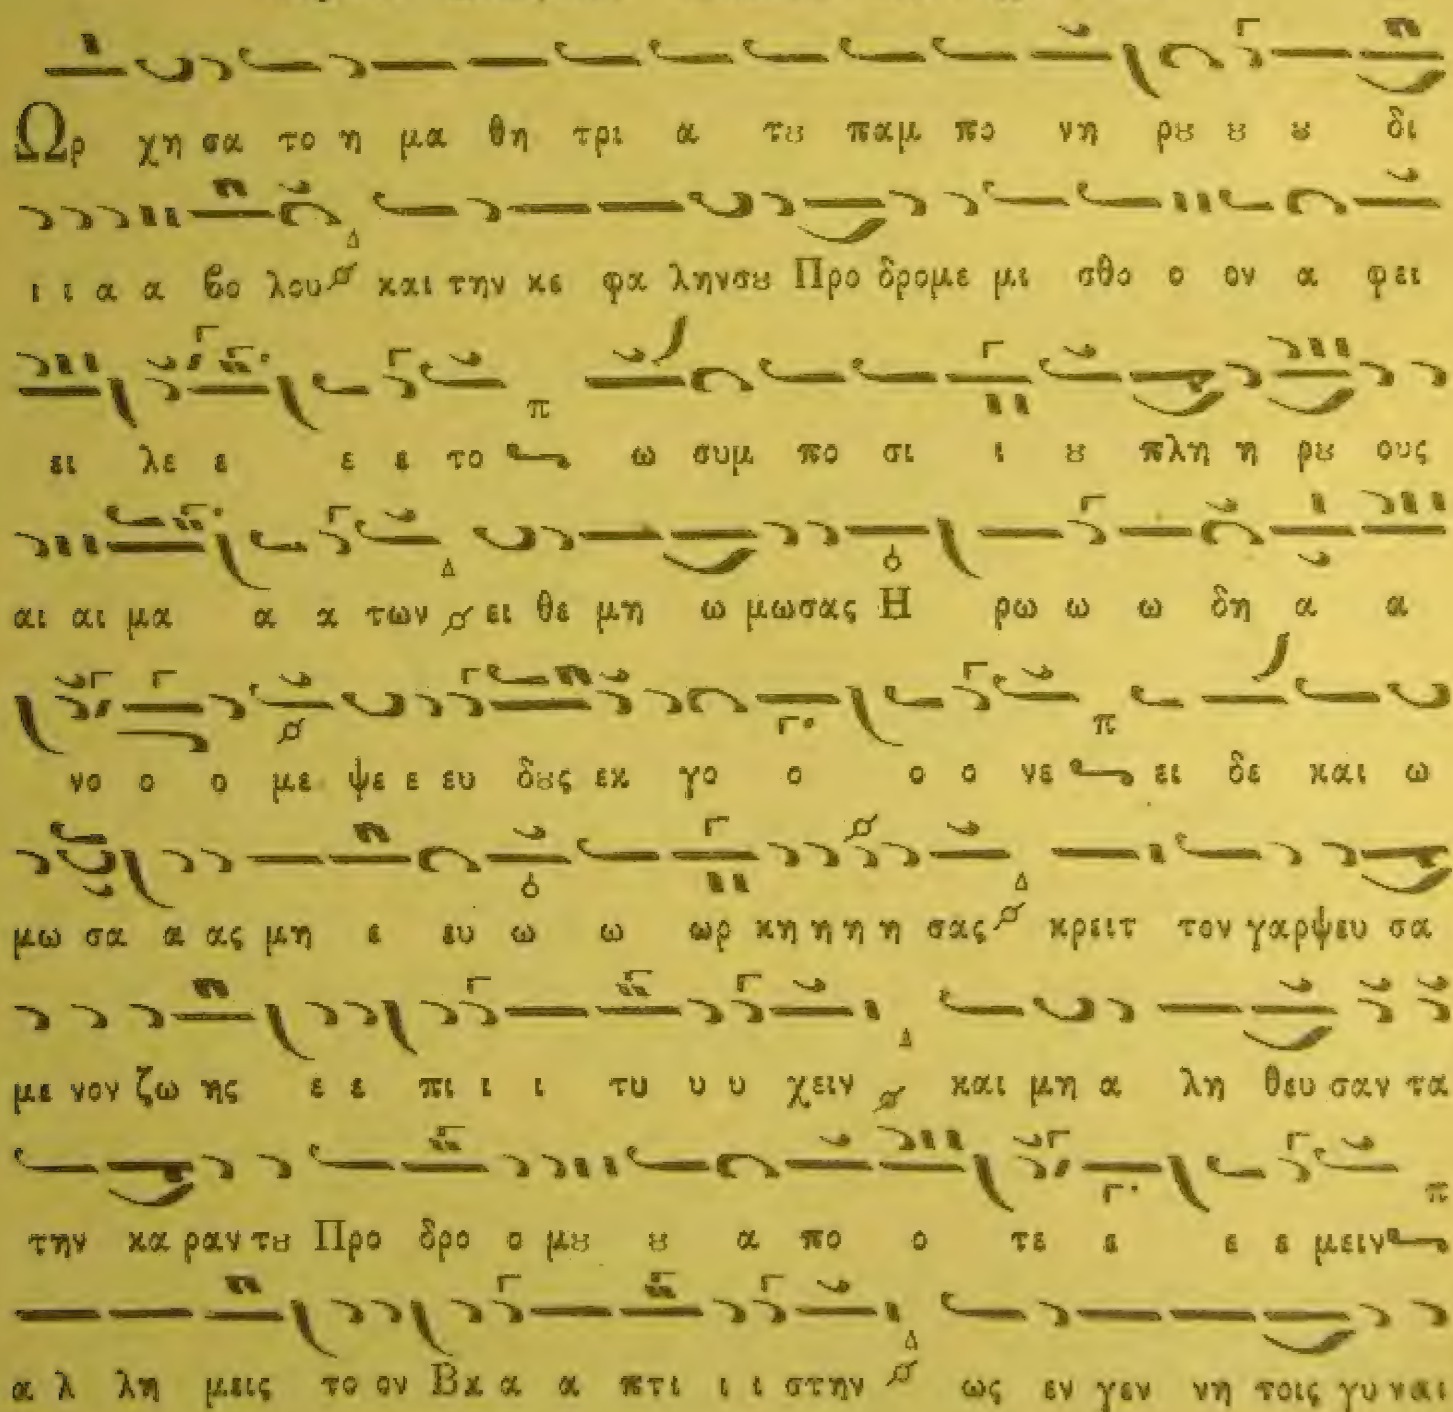 Ωρ χη σα το η μα θη τρι α τȣ παμ πο νη ρȣ ȣ ȣ δι
ι ι α α βο λου και την κε φα ληνσȣ Προ δρομε μι σθο ο ον α φει
ει λε ε ε ε το ω συμ πο σι ι ȣ πλη η ρȣ ους
αι αι μα α α των ει θε μη ω μωσας Η ρω ω ω δη α α
νο ο ο με ψε ε ευ δȣς εκ γο ο ο ο νε ει δε και ω
μω σα α ας μη ε ευ ω ω ωρ κη η η η σας κρειτ τον γαρψευ σα
με νον ζω ης ε ε πι ι ι τυ υ υ χειν και μη α λη θευ σαν τα
την κα ραν τȣ Προ δρο ο μȣ ȣ α πο ο τε ε ε ε μειν
α λ λη μεις το ον Βα α α πτι ι ι στην ως εν γεν νη τοις γυ ναι